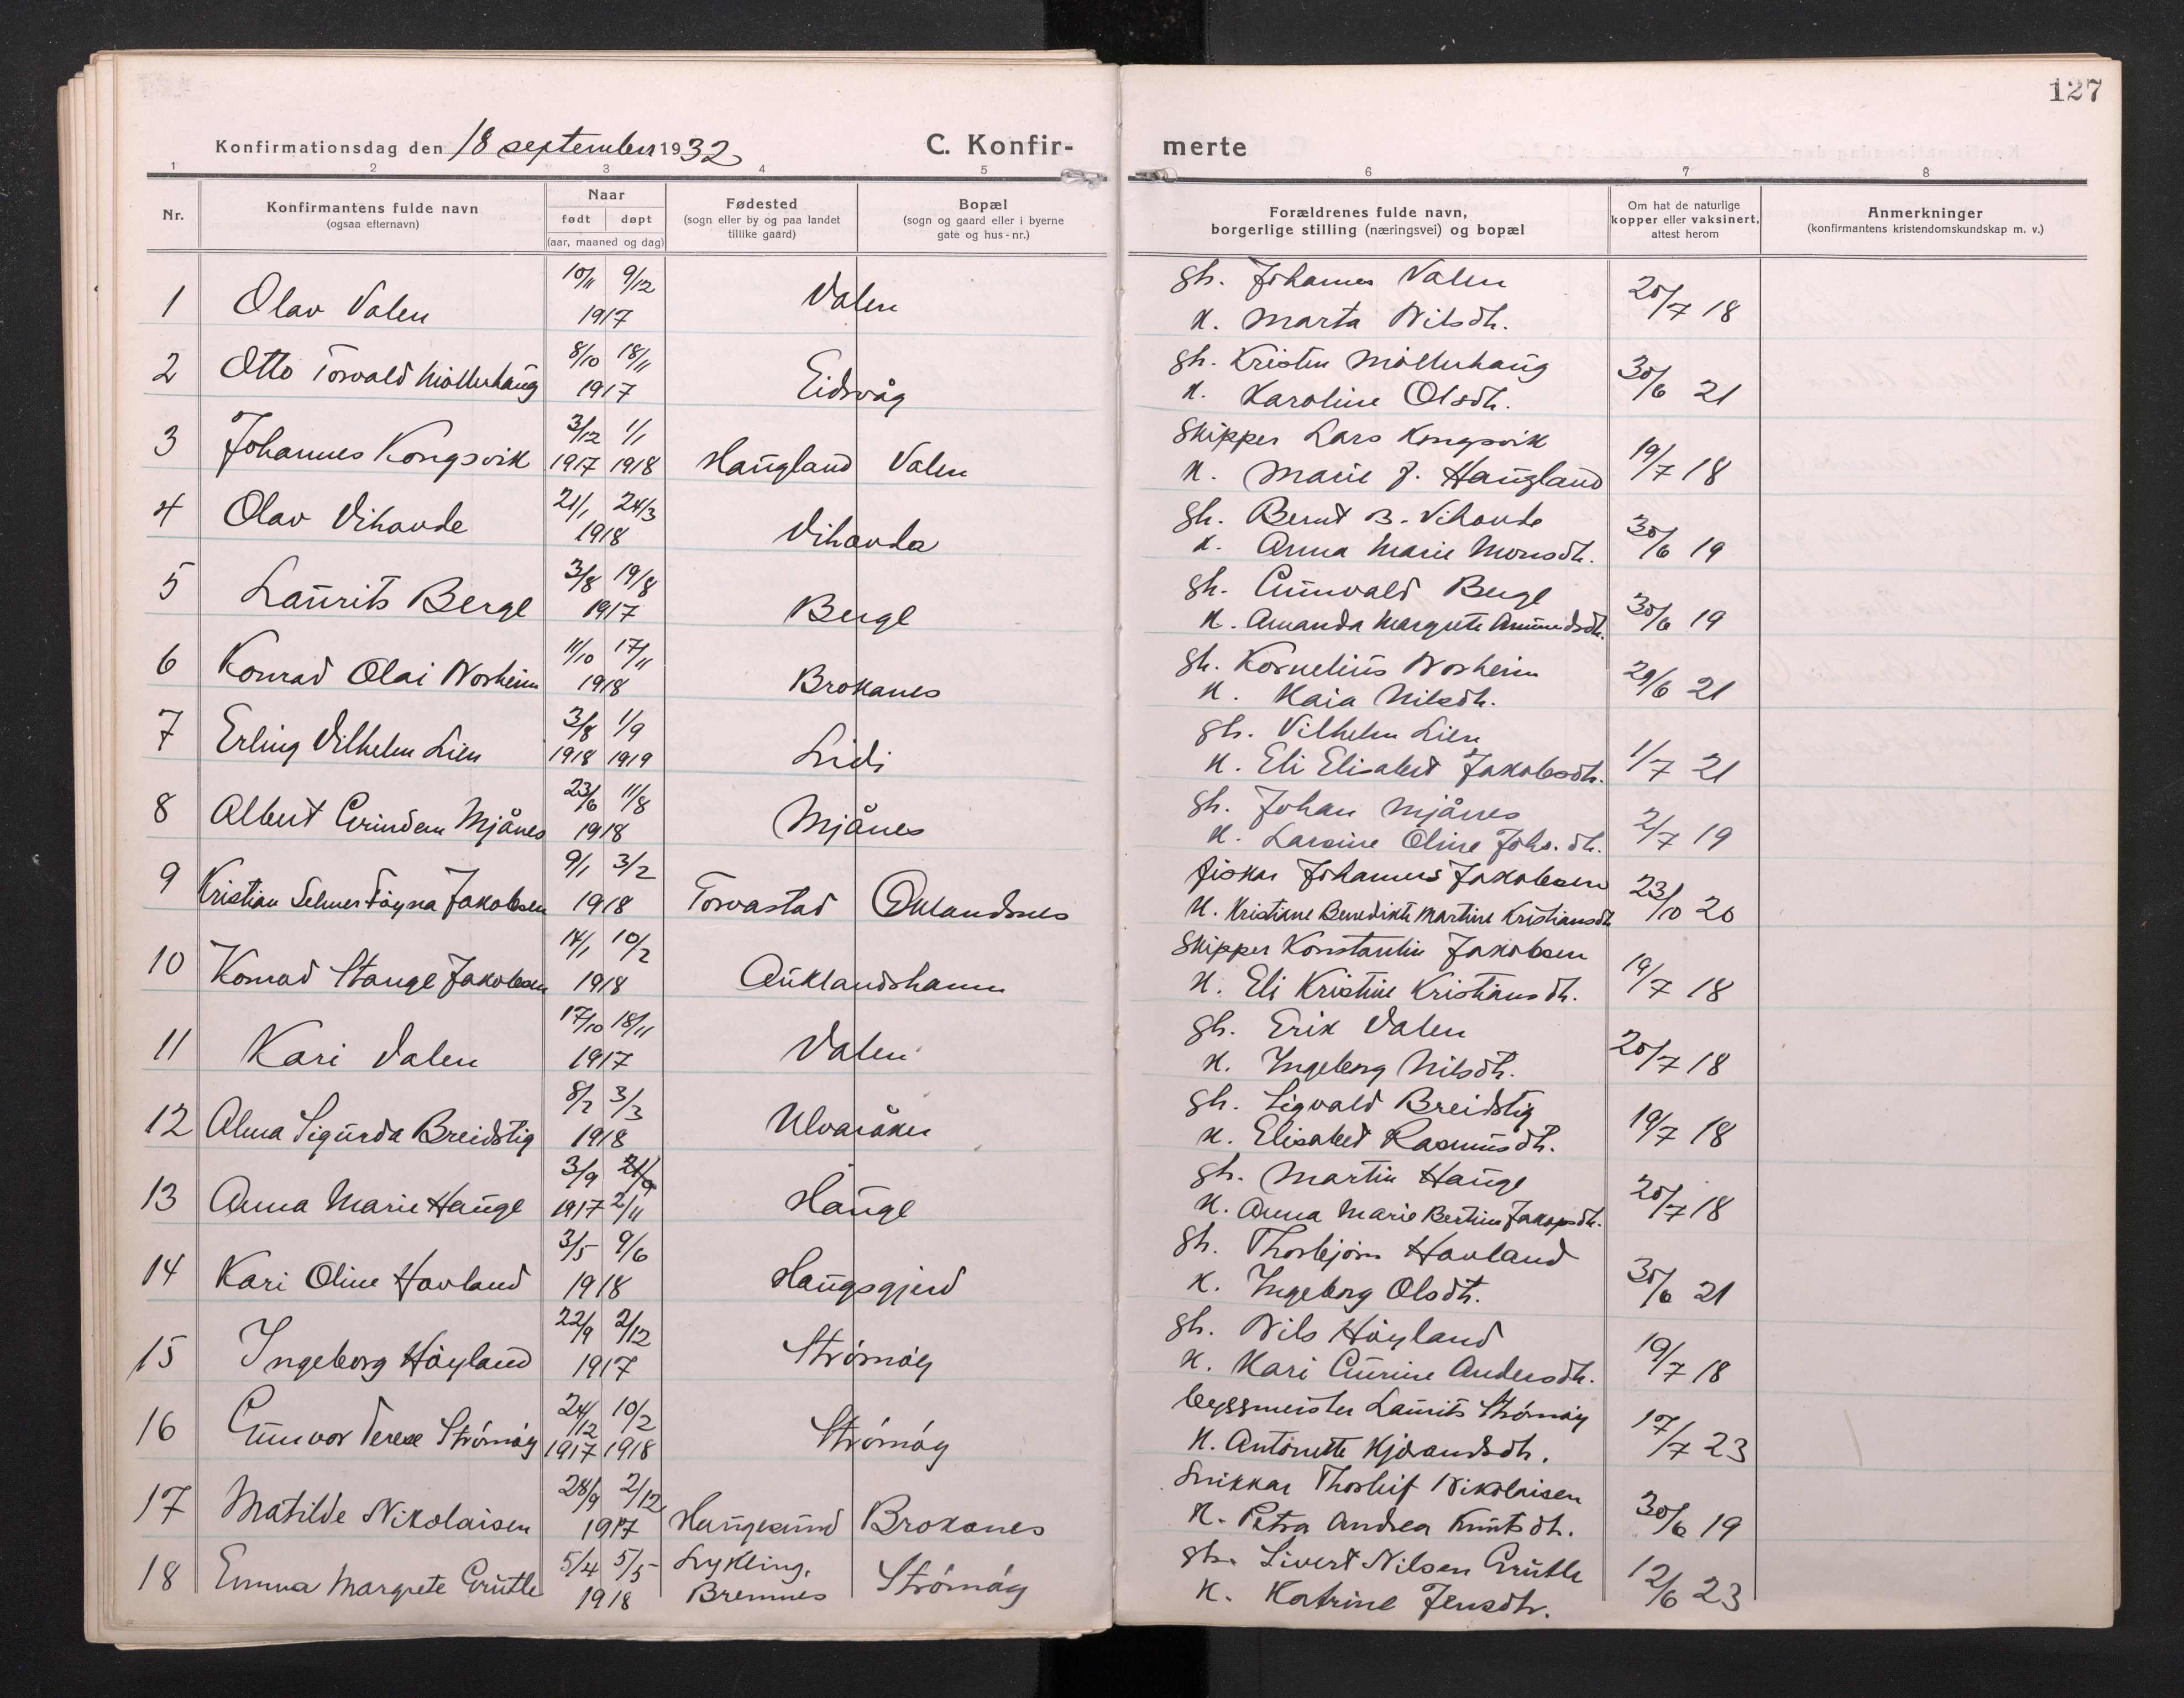 127
Konfirmationsdag den 18 september 1932 C. Konfir- merte
1 2 3 4 5 6 7 8
Nr. Konfirmantens fulde navn (ogsaa efternavn) Naar født døpt (aar, maaned og dag) Fødested (sogn eller by og paa landet tillike gaard) Bopæl (sogn og gaard eller i byerne gate og hus-nr.) Forældrenes fulde navn, borgerlige stilling (næringsvei) og bopæl Om hat de naturlige kopper eller vaksinert, attest herom Anmerkninger (konfirmantens kristendomskundskap m. v.)
10/11 9/12 gh. Johannes Valen
1 Olav Valen 1917 Valen K. Marta Nilsdtr. 20/7 18
8/10 18/11 gh. Kristen Møllerhaug
2 Otto Torvald Møllerhaug 1917 Eidsvåg K. Karoline Olsdtr. 30/6 21
3/12 1/1 Skipper Lars Kongsvik
3 Johannes Kongsvik 1917 1918 Haugland Valen K. Marie J. Haugland 19/7 18
21/1 24/3 gh. Bernt B. Vihovde
4 Olav Vihovde 1918 Vihovda K. Anna Marie Monsdtr. 30/6 19
3/8 19/8 gh. Gunvald Berge
5 Laurits Berge 1917 Berge K. Amanda Margrete Amundsdtr. 30/6 19
11/10 17/11 gh. Kornelius Norheim
6 Konrad Olai Norheim 1918 Brokanes K. Kaia Nilsdtr. 29/6 21
3/8 1/9 gh. Vilhelm Lien
7 Erling Vilhelm Lien 1918 1919 Lidi K. Eli Elisabet Jakobsdtr. 1/7 21
23/6 11/8 gh. Johan Mjånes
8 Albert Grindem Mjånes 1918 Mjånes K. Larsine Oline Johs. dtr. 2/7 19
9/1 3/2 fiskar Johannes Jakobsen
9 Kristian Selmer Føyna Jakobsen 1918 Torvastad Øklandsnes K. Kristiane Benedikte Martine Kristiansdtr 23/10 20
14/1 10/2 Skipper Konstantin Jakobsen
10 Konrad Stange Jakobsen 1918 Auklandshamn K. Eli Kristine Kristiansdtr. 19/7 18
17/10 18/11 gh. Erik Valen
11 Kari Valen 1917 Valen K. Ingeborg Nilsdtr. 20/7 18
8/2 3/3 gh. Sigvald Breidstig
12 Alma Sigurda Breidstig 1918 Ulvaråker K. Elisabet Rasmusdtr. 19/7 18
3/9 gh. Martin Hauge
13 Anna Marie Hauge 1917 2/11 Hauge K. Anna Marie Bertine Jakopsdtr. 20/7 18
3/5 9/6 gh. Thorbjørn Hovland
14 Kari Oline Hovland 1918 Haugsgjerd K. Ingeborg Olsdtr. 30/6 21
22/9 2/12 gh. Nils Høyland
15 Ingeborg Høyland 1917 Strømøy K. Kari Gurine Andersdtr. 19/7 18
24/12 10/2 byggmeister Laurits Strømøy
16 Gunvor Terese Strømøy 1917 1918 Strømøy K. Antonette Kjørandsdtr. 17/7 23
28/9 2/12 Snikkar Thorleif Nikolaisen
17 Matilde Nikolaisen 1917 Haugesund Brokanes K. Petra Andrea Knutsdtr. 30/6 19
5/4 5/5 Lykling, gh. Sivert Nilsen Grutle
18 Emma Margrete Grutle 1918 Bremnes Strømøy K. Katrine Jensdtr. 12/6 23